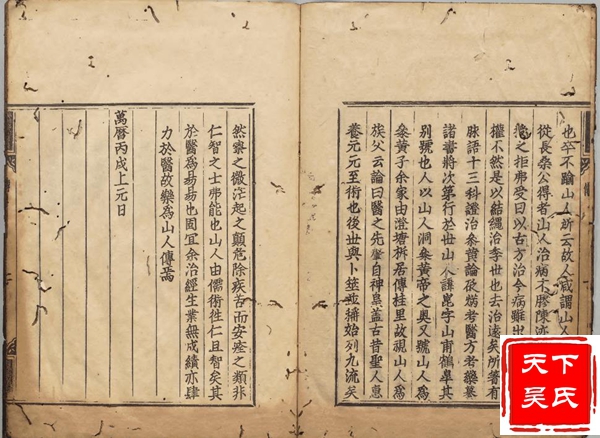 也卒不踰山人所云故人咸謂山人
從長桑公得者山人治病不膠陳迹
之拒弗受曰以古方治今病雖出
權不然是以結繩治季世也去治遠矣所著有
脉語十三科證治參黃論砭焫考醫方考藥纂
諸書將次第行於世山人諱崑字山甫鶴皋其
別號也人以山人洞參黃帝之奧又號山人爲
參黃子余家由澄塘析居傳桂里故視山人爲
族父云論曰醫之先肇自神皇盖古昔聖人惠
養元元至術也後世與卜筮並稱始列九流矣
然寧之微茫起之顛危除疾苦而安痊之類非
仁智之士弗能也山人由儒術徃仁且智矣其
於醫爲易易也固宜余治經生業無成績亦肆
力於醫故樂爲山人傳焉
萬曆丙戌上元日
天下
吴氏